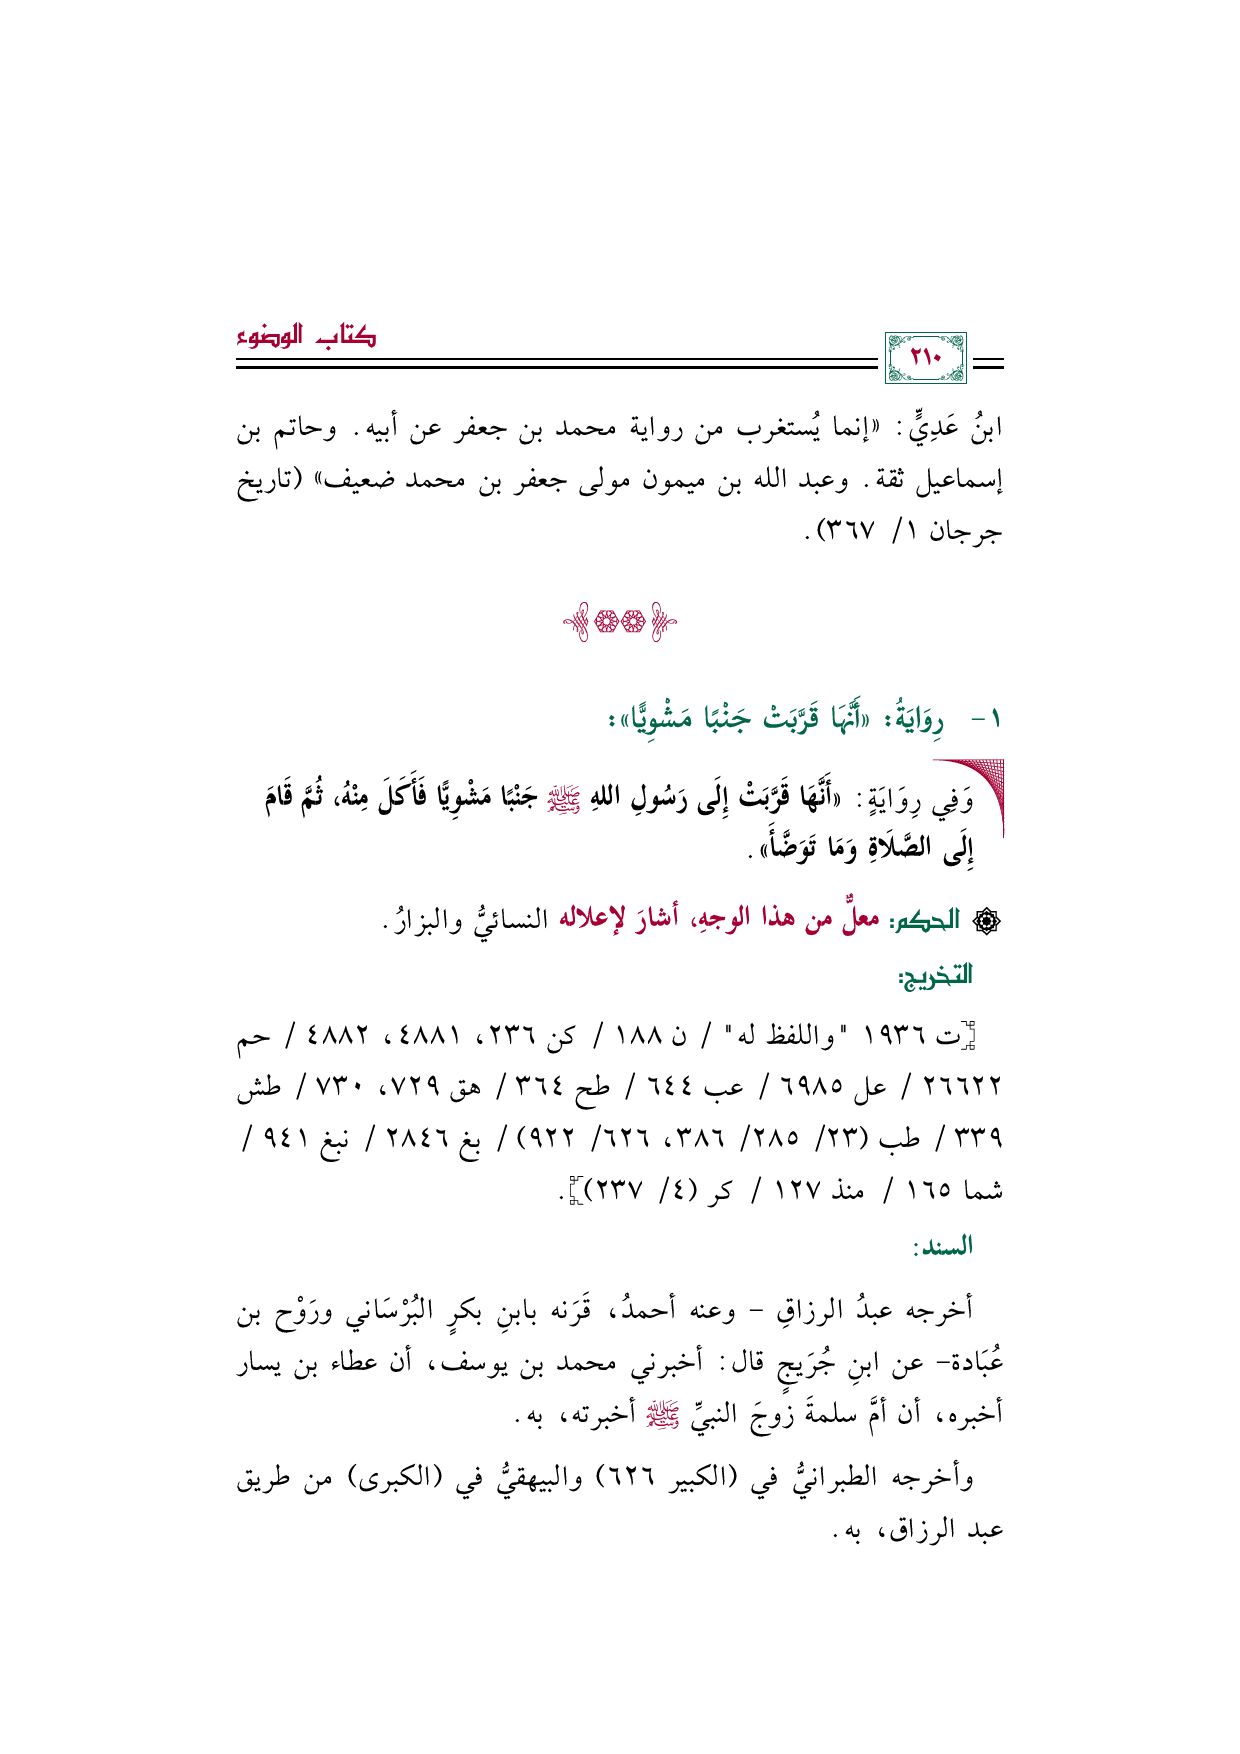 كتاب الوضوء
٢١٠
ابنُ عَدِيٍّ: «إنما يُستغرب من رواية محمد بن جعفر عن أبيه. وحاتم بن
إسماعيل ثقة. وعبد الله بن ميمون مولى جعفر بن محمد ضعيف» (تاريخ
جرجان ١/ ٣٦٧).
١- رِوَايَةُ: «أَنَّهَا قَرَّبَتْ جَنْبًا مَشْوِيًّا»:
وَفِي رِوَايَةٍ: «أَنَّهَا قَرَّبَتْ إِلَى رَسُولِ اللهِ ﷺ جَنْبًا مَشْوِيًّا فَأَكَلَ مِنْهُ، ثُمَّ قَامَ
إِلَى الصَّلَاةِ وَمَا تَوَضَّأَ».
الحكم: معلٌّ من هذا الوجهِ، أشارَ لإعلاله النسائيُّ والبزارُ.
التخريج:
[ت ١٩٣٦ "واللفظ له" / ن ١٨٨ / كن ٢٣٦، ٤٨٨١، ٤٨٨٢ / حم
٢٦٦٢٢ / عل ٦٩٨٥ / عب ٦٤٤ / طح ٣٦٤ / هق ٧٢٩، ٧٣٠ / طش
٣٣٩ / طب (٢٣/ ٢٨٥/ ٣٨٦، ٦٢٦/ ٩٢٢) / بغ ٢٨٤٦ / نبغ ٩٤١ /
شما ١٦٥ / منذ ١٢٧ / كر (٤/ ٢٣٧)].
السند:
أخرجه عبدُ الرزاقِ – وعنه أحمدُ، قَرَنه بابنِ بكرٍ البُرْسَاني ورَوْح بن
عُبَادة- عن ابنِ جُرَيجٍ قال: أخبرني محمد بن يوسف، أن عطاء بن يسار
أخبره، أن أمَّ سلمةَ زوجَ النبيِّ ﷺ أخبرته، به.
وأخرجه الطبرانيُّ في (الكبير ٦٢٦) والبيهقيُّ في (الكبرى) من طريق
عبد الرزاق، به.